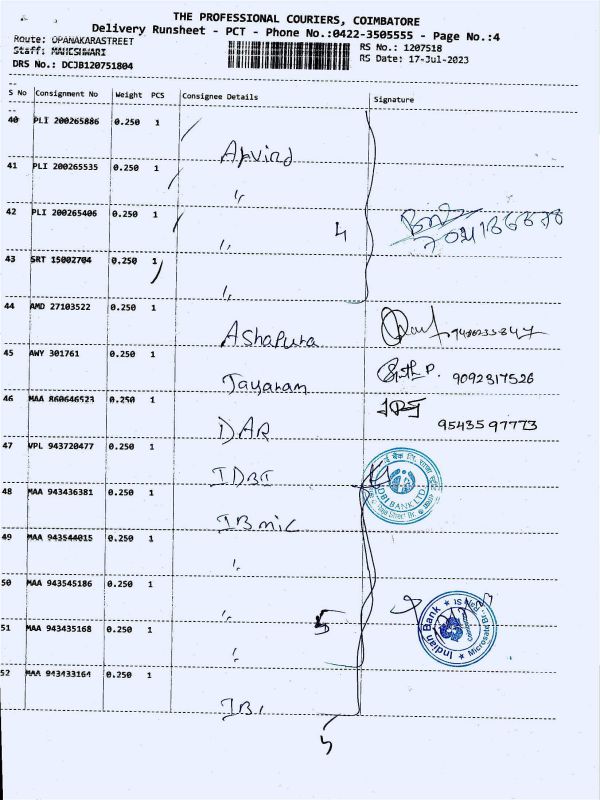 THE PROFESSIONAL COURIERS, COIMBATORE
Delivery Runsheet - PCT - Phone No.:0422-3505555 - Page No.:4
Route: OPANAKARASTREET
RS No.: 1207518
Staff: MAHESHWARI
RS Date: 17-Jul-2023
DRS No.: DCJB120751804
S No Consignment No Weight PCS Consignee Details Signature
40 PLI 200265886 0.250 1 Arvind
41 PLI 200265535 0.250 1 "
42 PLI 200265406 0.250 1 " 4
43 SRT 15002704 0.250 1 "
44 AMD 27103522 0.250 1 Ashapura
45 AWY 301761 0.250 1 Jayaram 9092817526
46 MAA 860646523 0.250 1 DAR 9543597773
47 VPL 943720477 0.250 1 IDBI
IDBI BANK LTD.
48 MAA 943436381 0.250 1 IB mic
49 MAA 943544015 0.250 1 "
50 MAA 943545186 0.250 1 "
51 MAA 943435168 0.250 1 " 5
Indian Bank
52 MAA 943433164 0.250 1